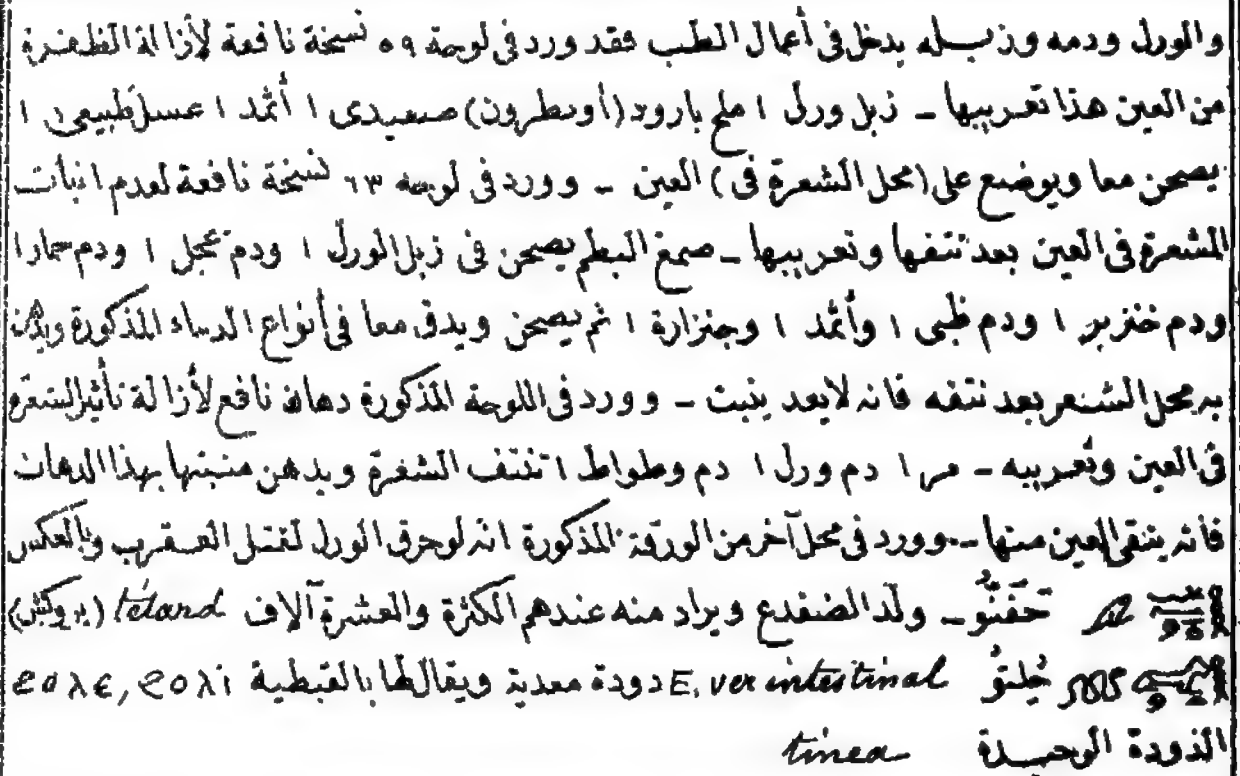 والورل ودمه وزبله يدخل فى أعمال الطب فقد ورد فى لوحة ٥٩ نسخة نافعة لأزالة الظفرة
من العين هذا تعريبها ـ زبل ورل ١ ملح بارود (أو نطرون) صعيدى ١ أثمد ١ عسل طبيعى ١
يصحن معا ويوضع على (محل الشعرة فى) العين ـ وورد فى لوحه ٦٣ نسخة نافعة لعدم انبات
الشعرة فى العين بعد نتفها وتعريبها ـ صمغ البطم يصحن فى زبل الورل ١ ودم عجل ١ ودم حمار ١
ودم خنزير ١ ودم ظبى ١ وأثمد ١ وجنزارة ١ ثم يصحن ويدق معا فى أنواع الدماء المذكورة ويدهن
به محل الشعر بعد نتفه فانه لا يعد ينبت ـ وورد فى اللوحة المذكورة دهان نافع لأزالة تأثير الشعرة
فى العين وتعريبه ـ مر ١ دم ورل ١ دم وطواط ١ تنتف الشعرة ويدهن منبتها بهذا الدهان
فأنه ينقى العين منها ـ وورد فى محل آخر من الورقة المذكورة انه لو حرق الورل لقتل العقرب وبالعكس
حَفَنُّو ـ ولد الضفدع ويراد منه عندهم الكثرة والعشرة آلاف têtard (بروكش)
حُلِتوُ E. ver intestinal دودة معدية ويقال لها بالقبطية ϩⲟⲗⲉ, ϩⲟⲗⲓ
الدودة الوحيدة tinea